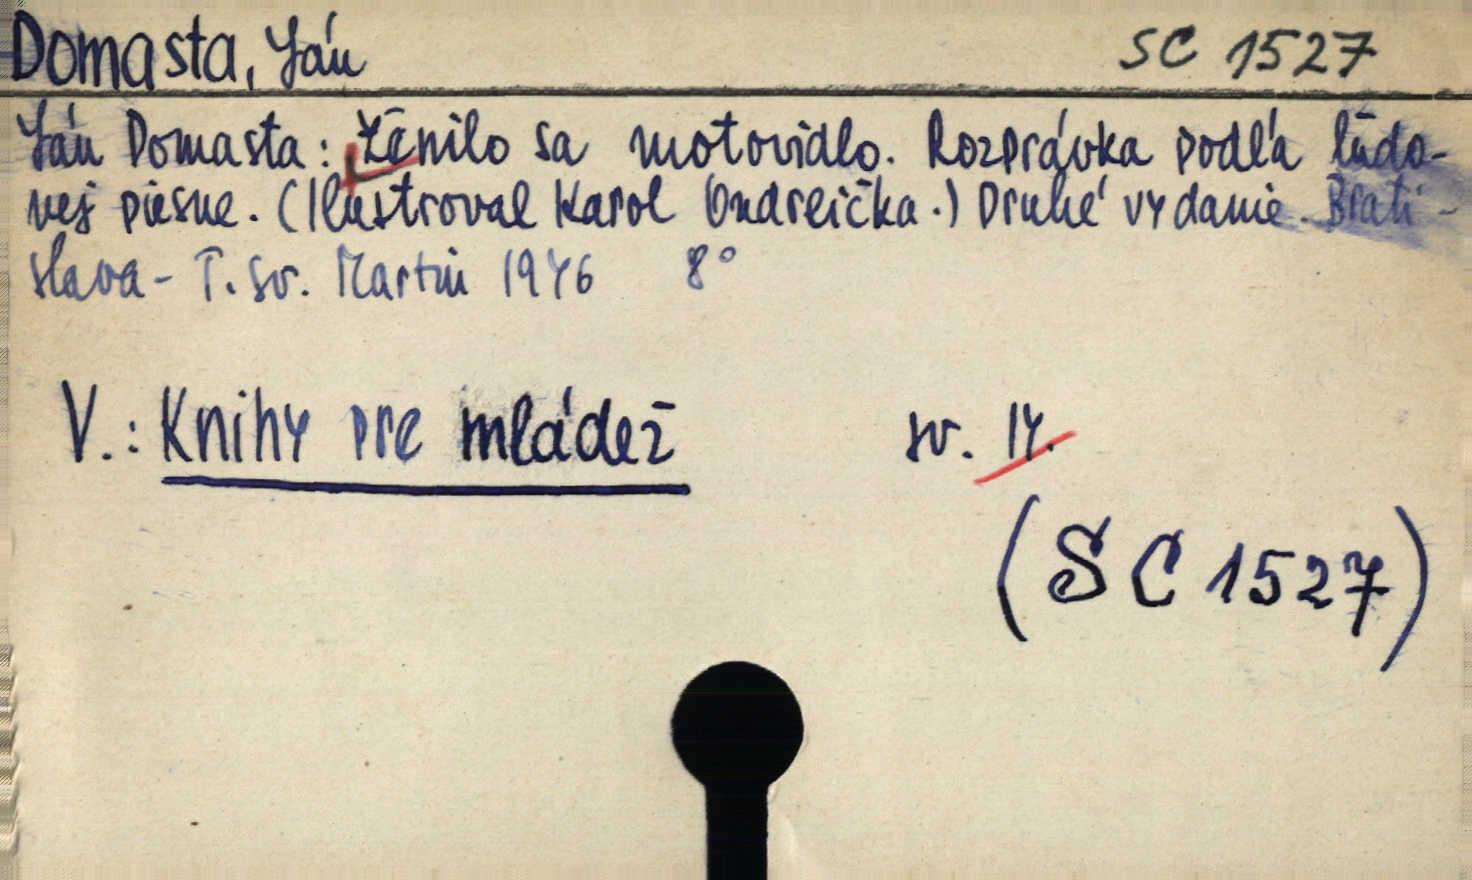 Domasta, Ján
SC 1527
Ján Domasta: Ženilo sa motovidlo. Rozprávka podľa ľudo-
vej piesne. (Ilustroval Karol Ondreička.) Druhé vydanie. Brati-
slava - T. sv. Martin 1946 8°
V.: Knihy pre mládež sv. 14.
(SC 1527)